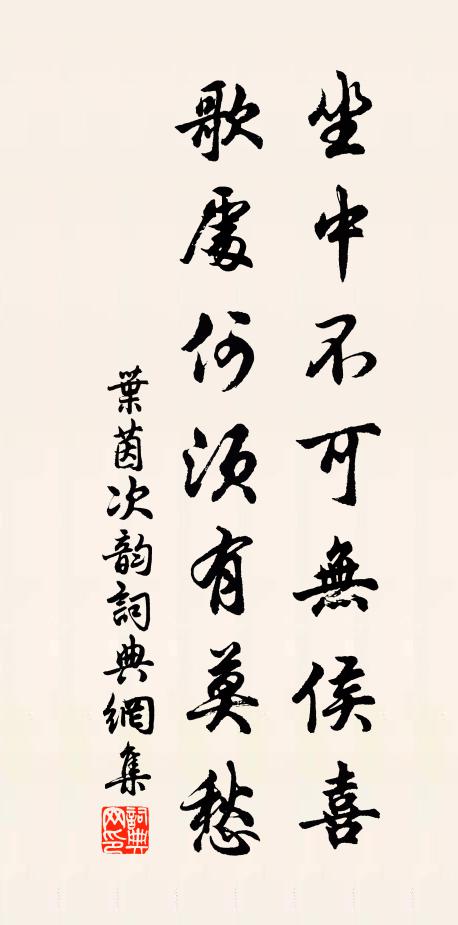 坐中不可無侯喜
歌處何須有莫愁
葉茵次韵詞典網集
詞典網印